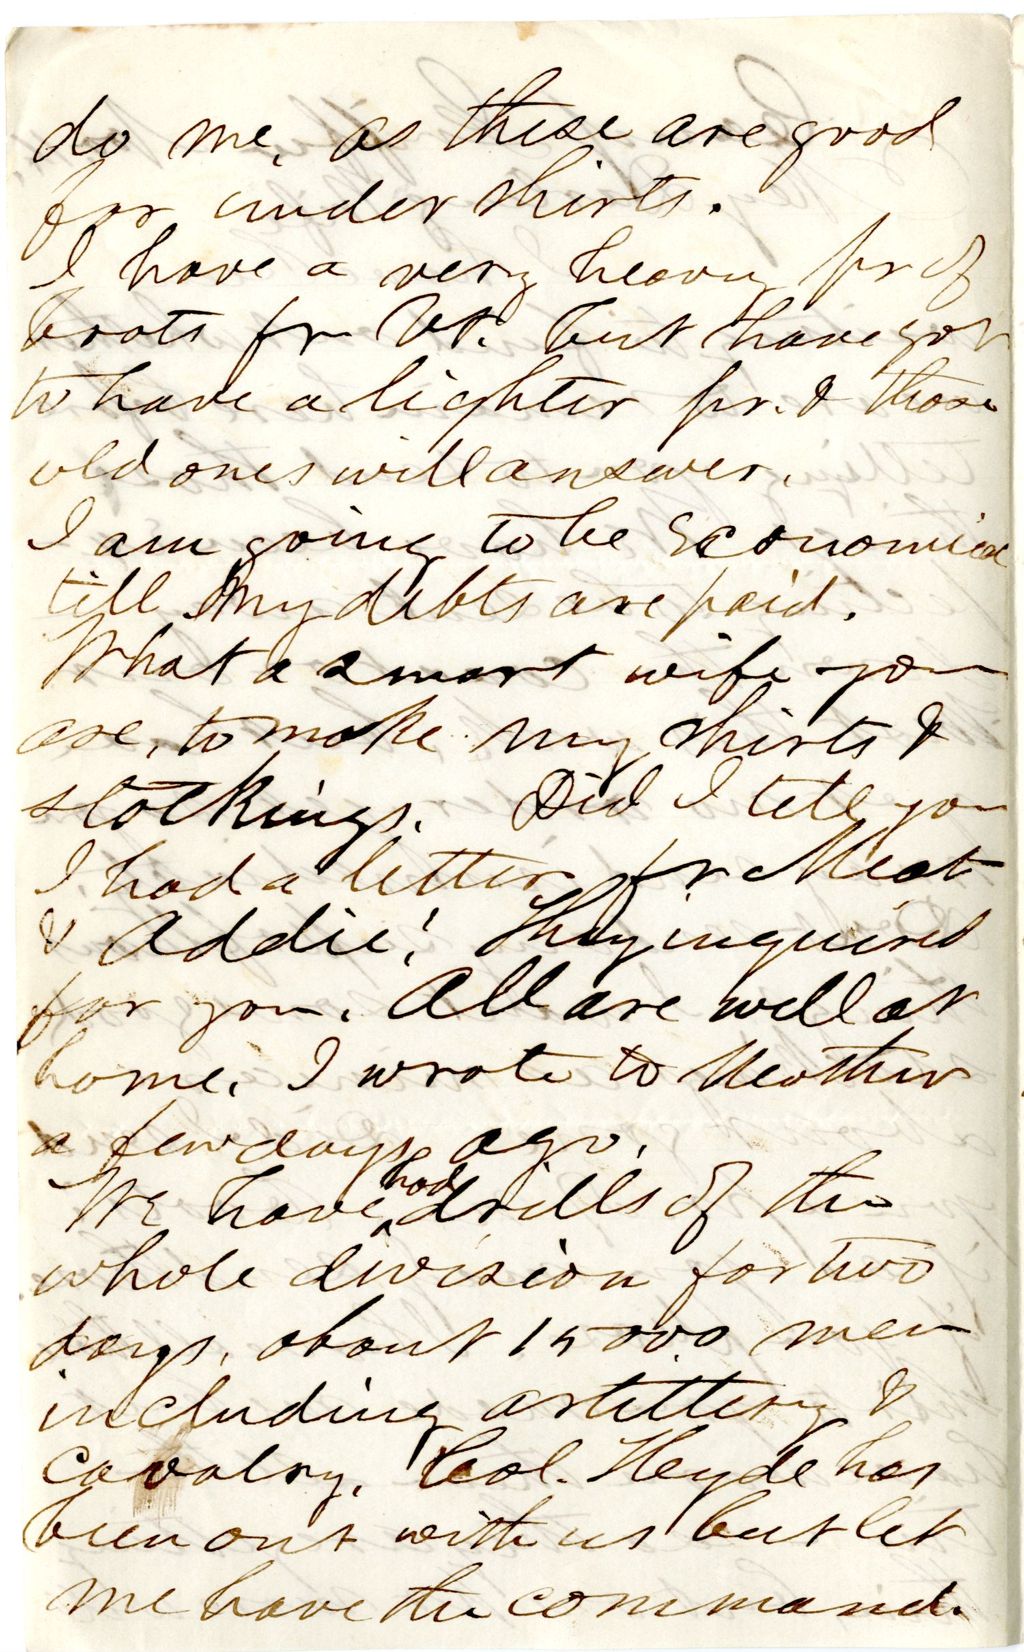 do me, as these are good
for under shirts.
I have a very heavy pr of
boots fr Vt. but have got
to have a lighter pr. & those
old ones will answer.
I am going to be Economical
till my debts are paid.
What a smart wife you
are, to make my shirts &
stockings. Did I tell you
I had a letter fr
& Addie! They inquired
for you. All are well at
home. I wrote to Mother
a few days ago.
We have had drills of the
whole division for two
days, about 15000 men
including artillery &
cavalry. Col. Heyde has
been out with us but let
me have the command.